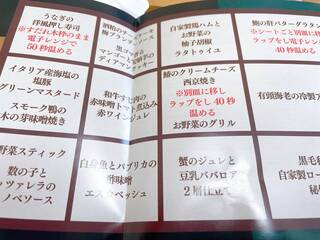 うなぎの
洋風押し寿司
※すだれ木枠のまま
電子レンジで
50秒温める
自家製鶏ハムと
お野菜の
柚子胡椒
ラタトゥイユ
鮑の肝バターグラタン
※シートごと別皿に移し
ラップをし電子
40秒温める
イタリア産海塩の
塩豚
グリーンマスタード
スモーク鴨の
木の芽味噌焼き
和牛すじ肉の
赤味噌トマト煮込み
赤ワインジュレ
鰆のクリームチーズ
西京焼き
※別皿に移し
ラップをし40秒
温める
お野菜のグリル
有頭海老の冷製
野菜スティック
数の子と
モッツァレラの
ノベソース
白身魚とパプリカの
酢味噌
エスカベッシュ
蟹のジュレと
豆乳ババロア
2層仕立て
黒毛
自家製ロー
秘